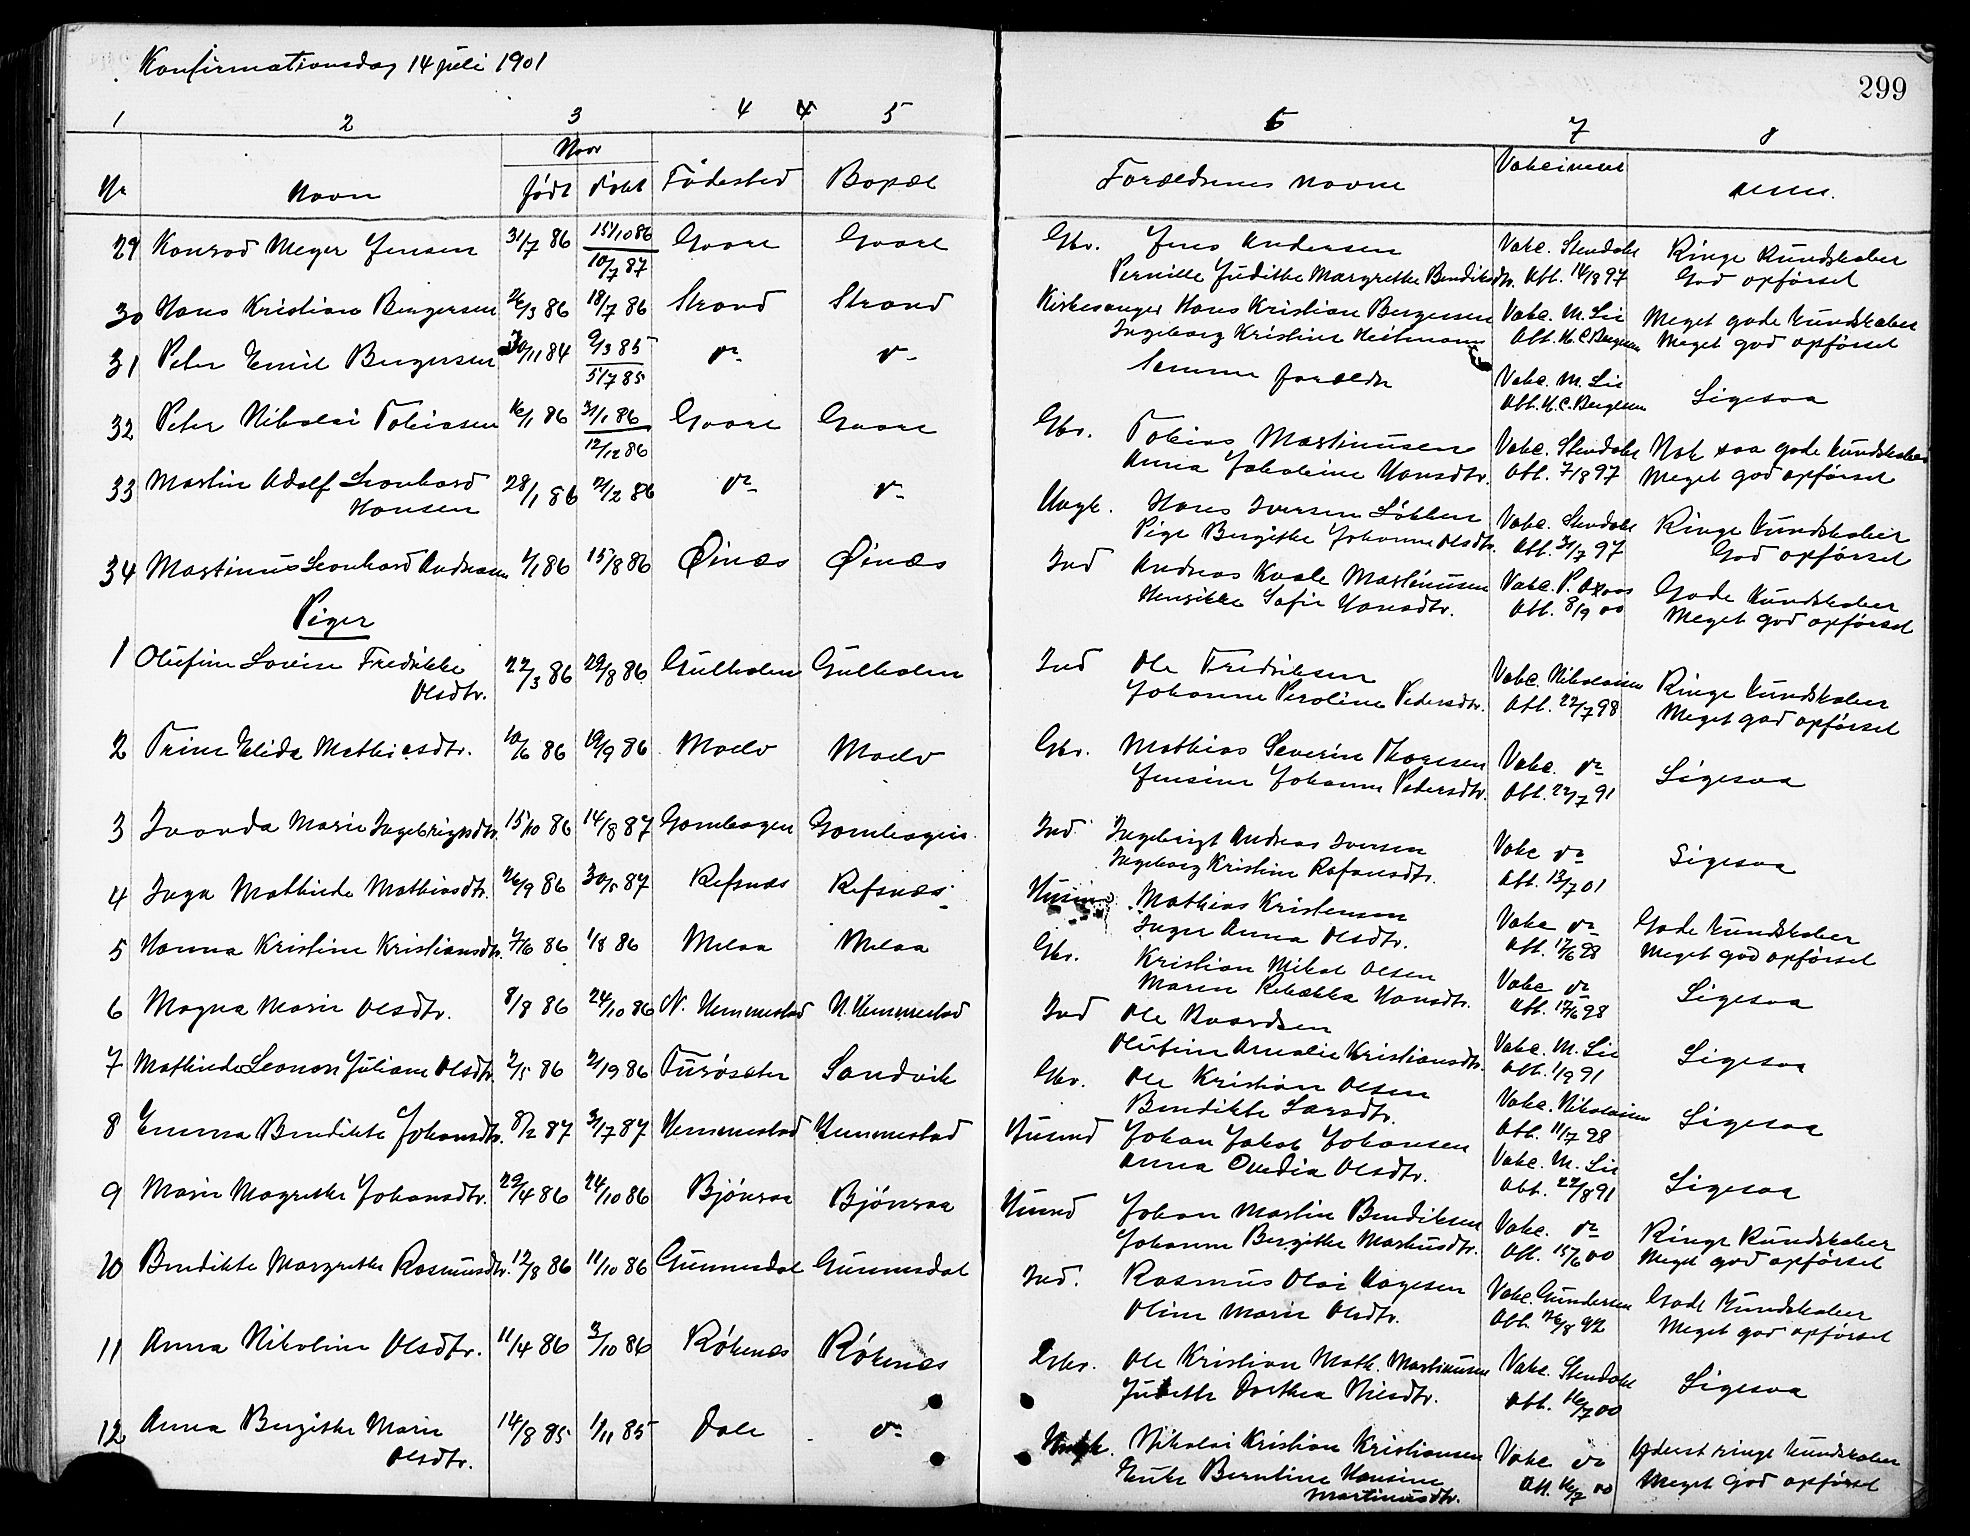 Konfirmationsdag 14 juli 1901
299
1 2 3 4 4 5 6 7 8
Naar
No Navn født døbt Fødested Bopæl Forældrenes navne Vakcineret
29 Konrad Meyer Jensen 31/7 86 15/10 86 Gaare Gaare Gbr. Jens Andersen Vakc. Stendahl Ringe Kundskaber
10/7 87 Pernille Judithe Margrethe Bendiksdtr. Att. 14/8 97 God opførsel
30 Hans Kristian Bergersen 26/3 86 18/7 86 Strand Strand Kirkesanger Hans Kristian Bergersen Vakc. M. Lie Meget gode Kundskaber
Ingeborg Kristine Heitmann Att. H. C. Bergesen Meget god opførsel
31 Peter Emil Bergersen 30/11 84 9/3 85 do do Samme forældre Vakc. M. Lie Ligesaa
5/7 85 Att. H. C. Bergesen
32 Peter Nikolai Tobiasen 16/1 86 31/1 86 Gaare Gaare Gbr. Tobias Martinusen Vakc. Stendahl Nok saa gode Kundskaber
12/12 86 Anna Jakobine Hansdtr. Att. 7/8 97 Meget god opførsel
33 Martin Adolf Leonhard 28/1 86 21/2 86 do do Ungk. Hans Iversen Løkken Vakc. Stendahl Ringe Kundskaber
Hansen Pige Bergithe Johanne Olsdtr. Att. 31/7 97 God opførsel
34 Martinus Leonhard Andreasen 1/1 86 15/8 86 Øinæs Øinæs Ind Andreas Kvale Martinusen Vakc. P. Oxaas Gode Kundskaber
Henrikke Sofie Hansdtr. Att. 8/9 00 Meget god opførsel
Piger
1 Olufine Lovise Fredrikke 22/3 86 29/8 86 Gulholen Gulholen Ind Ole Fredriksen Vakc. Nikolaisen Ringe Kundskaber
Olsdtr. Johanne Peroline Pedersdtr. Att. 22/7 98 Meget god opførsel
2 Trine Elida Mathiasdtr. 10/6 86 19/9 86 Maelv Maelv Gbr. Mathias Severin Thoresen Vakc. do Ligesaa
Jensine Johanne Pedersdtr. Att. 22/7 91
3 Ivanda Marie Ingebrigtsdtr. 15/10 86 14/8 87 Gamhagen Gamhagen Ind Ingebrigt Andreas Iversen Vakc do Ligesaa
Ingeborg Kristine Rafaelsdtr. Att. 13/7 01
4 Inga Mathilde Mathiasdtr. 26/9 86 30/5 87 Refsnæs Refsnæs Husm. Mathias Kristensen Vakc do Gode Kundskaber
Inger Anna Olsdtr. Att. 17/6 98 Meget god opførsel
5 Hanna Kristine Kristiansdtr. 7/6 86 1/8 86 Melaa Melaa Gbr. Kristian Mikal Olsen Vakc do Ligesaa
Maren Rebekka Hansdtr. Att. 17/6 98
6 Magna Marie Olsdtr. 8/8 86 24/10 86 N. Hemmestad N. Hemmestad Ind Ole Baardsen Vakc. M. Lie Ligesaa
Olufine Amalie Kristiansdtr. Att. 1/9 91
7 Mathilde Leonore Juliane Olsdtr. 2/5 86 2/9 86 Furøseter Sandvik Gbr. Ole Kristian Olsen Vakc. Nikolaisen Ligesaa
Bendikte Larsdtr. Att. 11/7 98
8 Emma Bendikte Johansdtr. 8/2 87 3/7 87 Hemmestad Hemmestad Husmd Johan Jakob Johansen Vakc. M. Lie Ligesaa
Anna Ovedia Olsdtr. Att. 22/8 91
9 Marie Magrethe Johansdtr. 29/4 86 24/10 86 Bjønraa Bjønraa Husmd Johan Martin Bendiksen Vakc. do Ringe Kundskaber
Johanne Bergithe Markusdtr. Att. 15/6 00 Meget god opførsel
10 Bendikte Margrethe Rasmusdtr. 12/8 86 11/10 86 Gunnesdal Gunnesdal Ind. Rasmus Olai Hagesen Vakc. Gundersen Gode Kundskaber
Oline Marie Olsdtr. Att. 26/8 92 Meget god opførsel
11 Anna Nikoline Olsdtr. 11/4 86 3/10 86 Røkenes Røkenes Ole Kristian Math. Martinusen Vakc. Stendahl Ligesaa
Judethe Dorthea Nilsdtr. Att. 16/7 00
12 Anna Bergithe Marie 14/8 85 1/11 85 Dale do Ungk. Nikolai Kristian Kristiansen Vakc do Yderst ringe Kundskaber
Olsdtr. Enke Berntine Hansine Att. 16/7 00 Meget God opførsel
Martinusdtr.